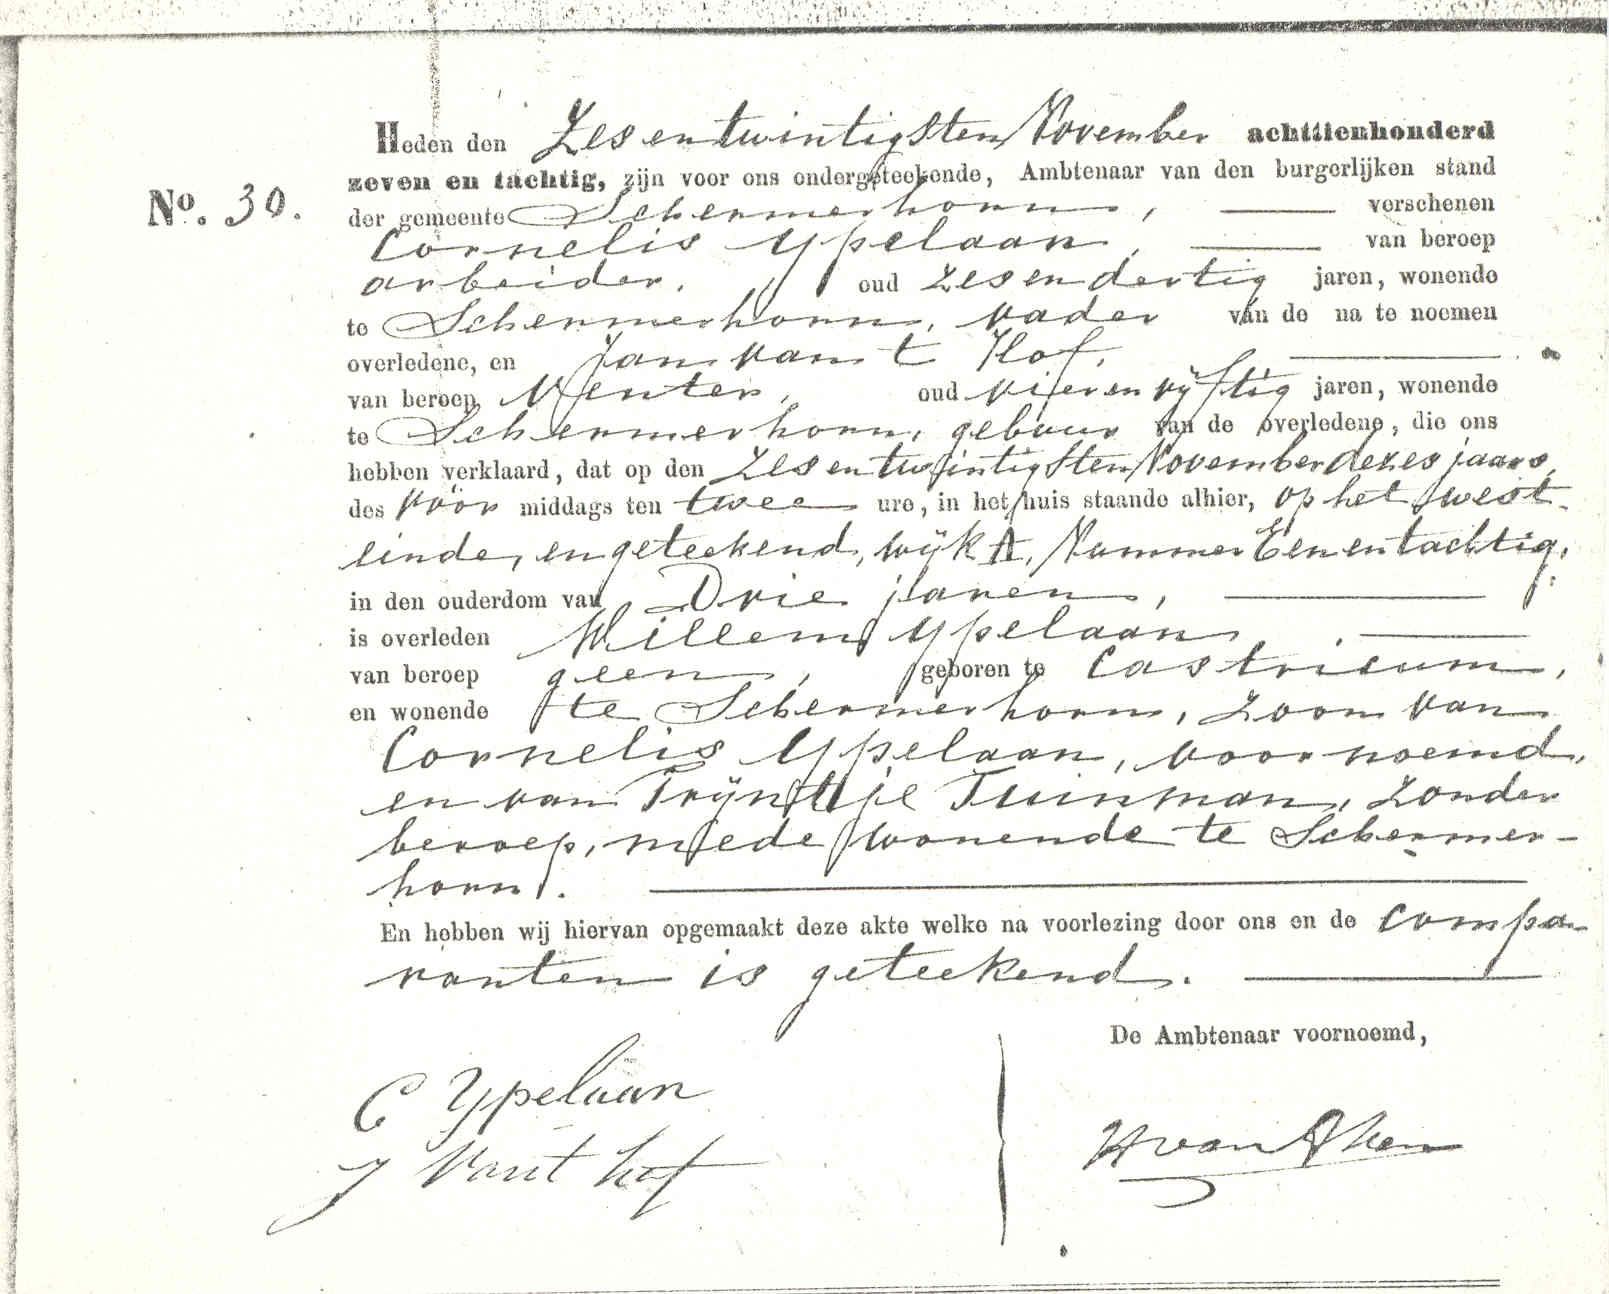 Heden den Zesentwintigsten November achttienhonderd
zeven en tachtig, zijn voor ons ondergeteekende, Ambtenaar van den burgerlijken stand
No. 30.
der gemeente Schermerhorn, verschenen
Cornelis Ypelaan, van beroep
arbeider, oud zesendertig jaren, wonende
te Schermerhorn, vader van de na te noemen
overledene, en Jan van 't Hof,
van beroep Venter, oud vierenvijftig jaren, wonende
te Schermerhorn, gebuur van de overledene, die ons
hebben verklaard, dat op den Zesentwintigsten November dezes jaars,
des vóór middags ten twee ure, in het huis staande alhier, op het west-
einde, en geteekend, wijk A, Nummer Eenentachtig,
in den ouderdom van Drie jaren,
is overleden Willem Ypelaan,
van beroep geen, geboren te Castricum,
en wonende te Schermerhorn, zoon van
Cornelis Ypelaan, voornoemd,
en van Trijntje Tuinman, zonder
beroep, mede wonende te Schermer-
horn.
En hebben wij hiervan opgemaakt deze akte welke na voorlezing door ons en de compa-
ranten is geteekend.
De Ambtenaar voornoemd,
C Ypelaan
J Vant hof